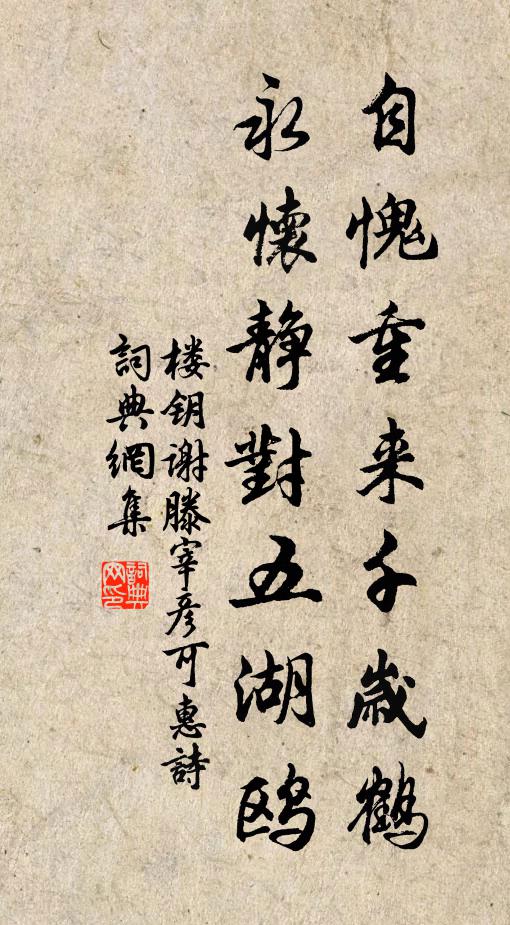 自愧重来千歲鶴
永懷静對五湖鸥
楼钥谢滕宰彦可惠詩
詞典網集
詞典网印